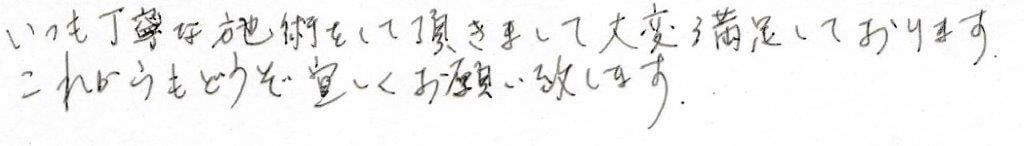 いつも丁寧な施術をして頂きまして大変満足しております.
これからもどうぞ宜しくお願い致します.